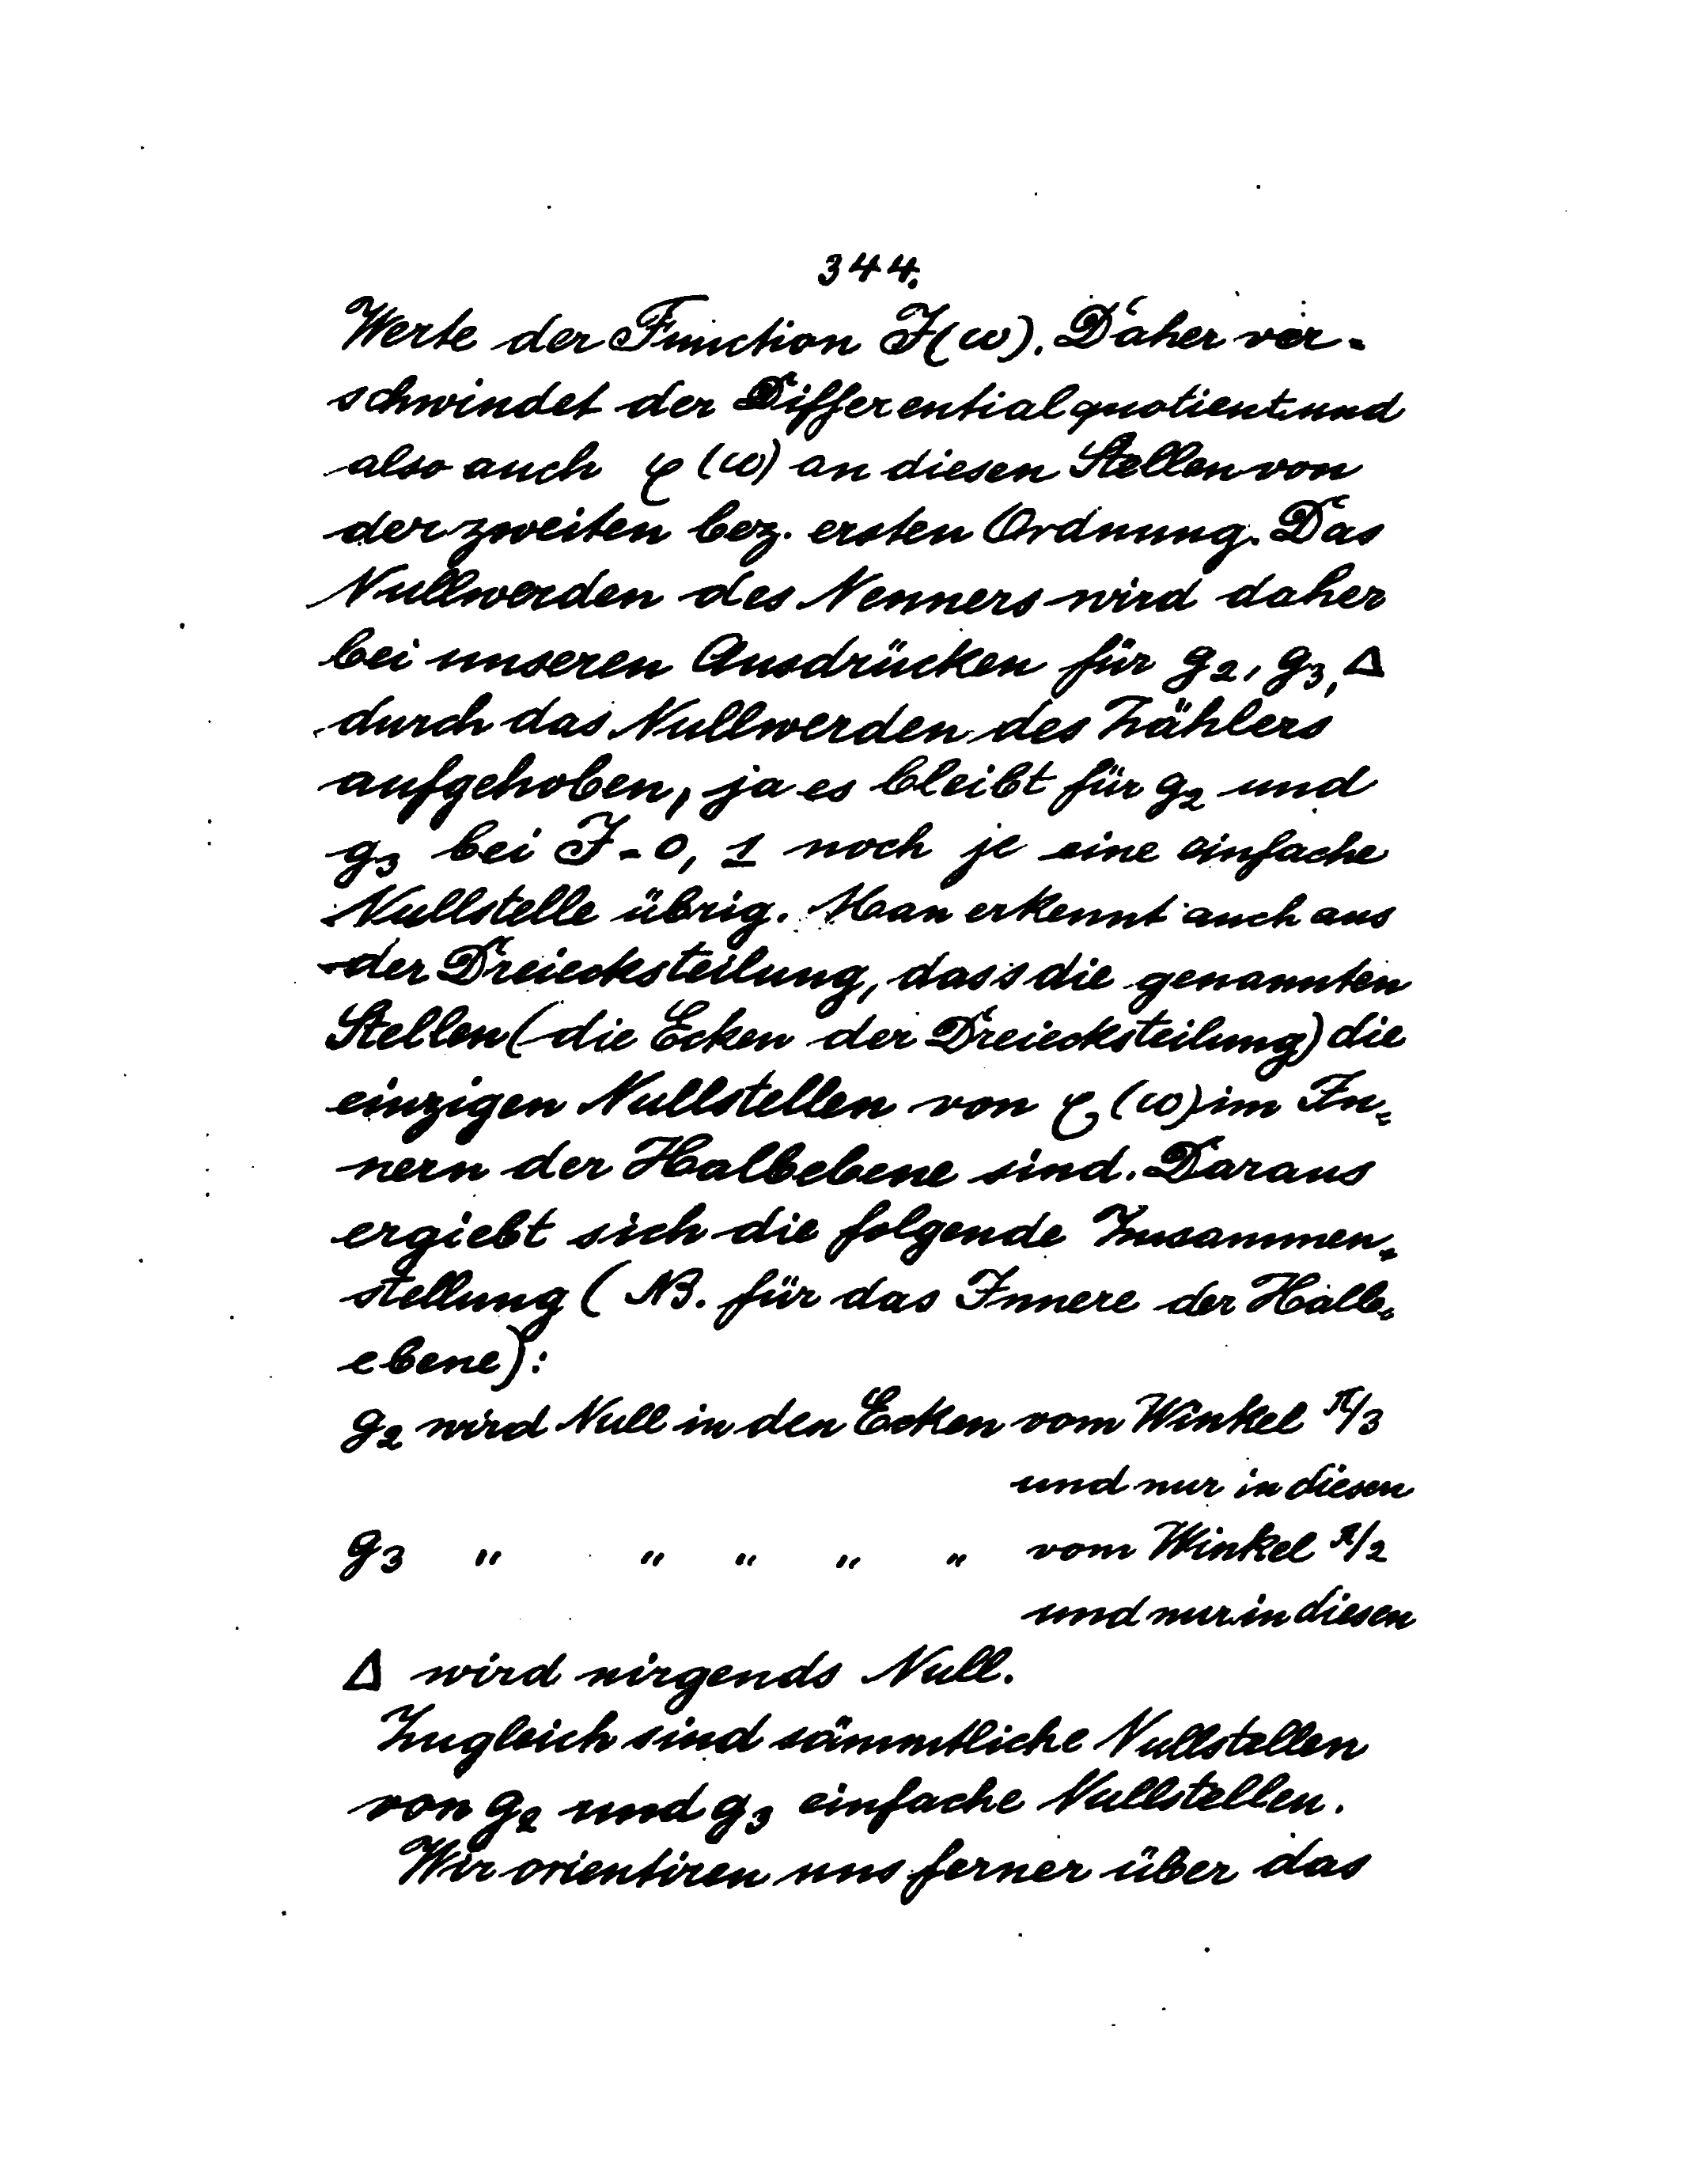 344.
Werte der Function J(ω). Daher ver-
schwindet der Differentialquotient und
also auch φ(ω) an diesen Stellen von
der zweiten bez. ersten Ordnung. Das
Nullwerden des Nenners wird daher
bei unseren Ausdrücken für g₂, g₃, Δ
durch das Nullwerden des Zählers
aufgehoben, ja es bleibt für g₂ und
g₃ bei J = 0, 1 noch je eine einfache
Nullstelle übrig. Man erkennt auch aus
der Dreiecksteilung, dass die genannten
Stellen (die Ecken der Dreiecksteilung) die
einzigen Nullstellen von φ(ω) im In-
nern der Halbebene sind. Daraus
ergiebt sich die folgende Zusammen-
stellung (NB. für das Innere der Halb-
ebene):
g₂ wird Null in den Ecken vom Winkel π/3
und nur in diesen
g₃ " " " " " vom Winkel π/2
und nur in diesen
Δ wird nirgends Null.
Zugleich sind sämmtliche Nullstellen
von g₂ und g₃ einfache Nullstellen.
Wir orientiren uns ferner über das